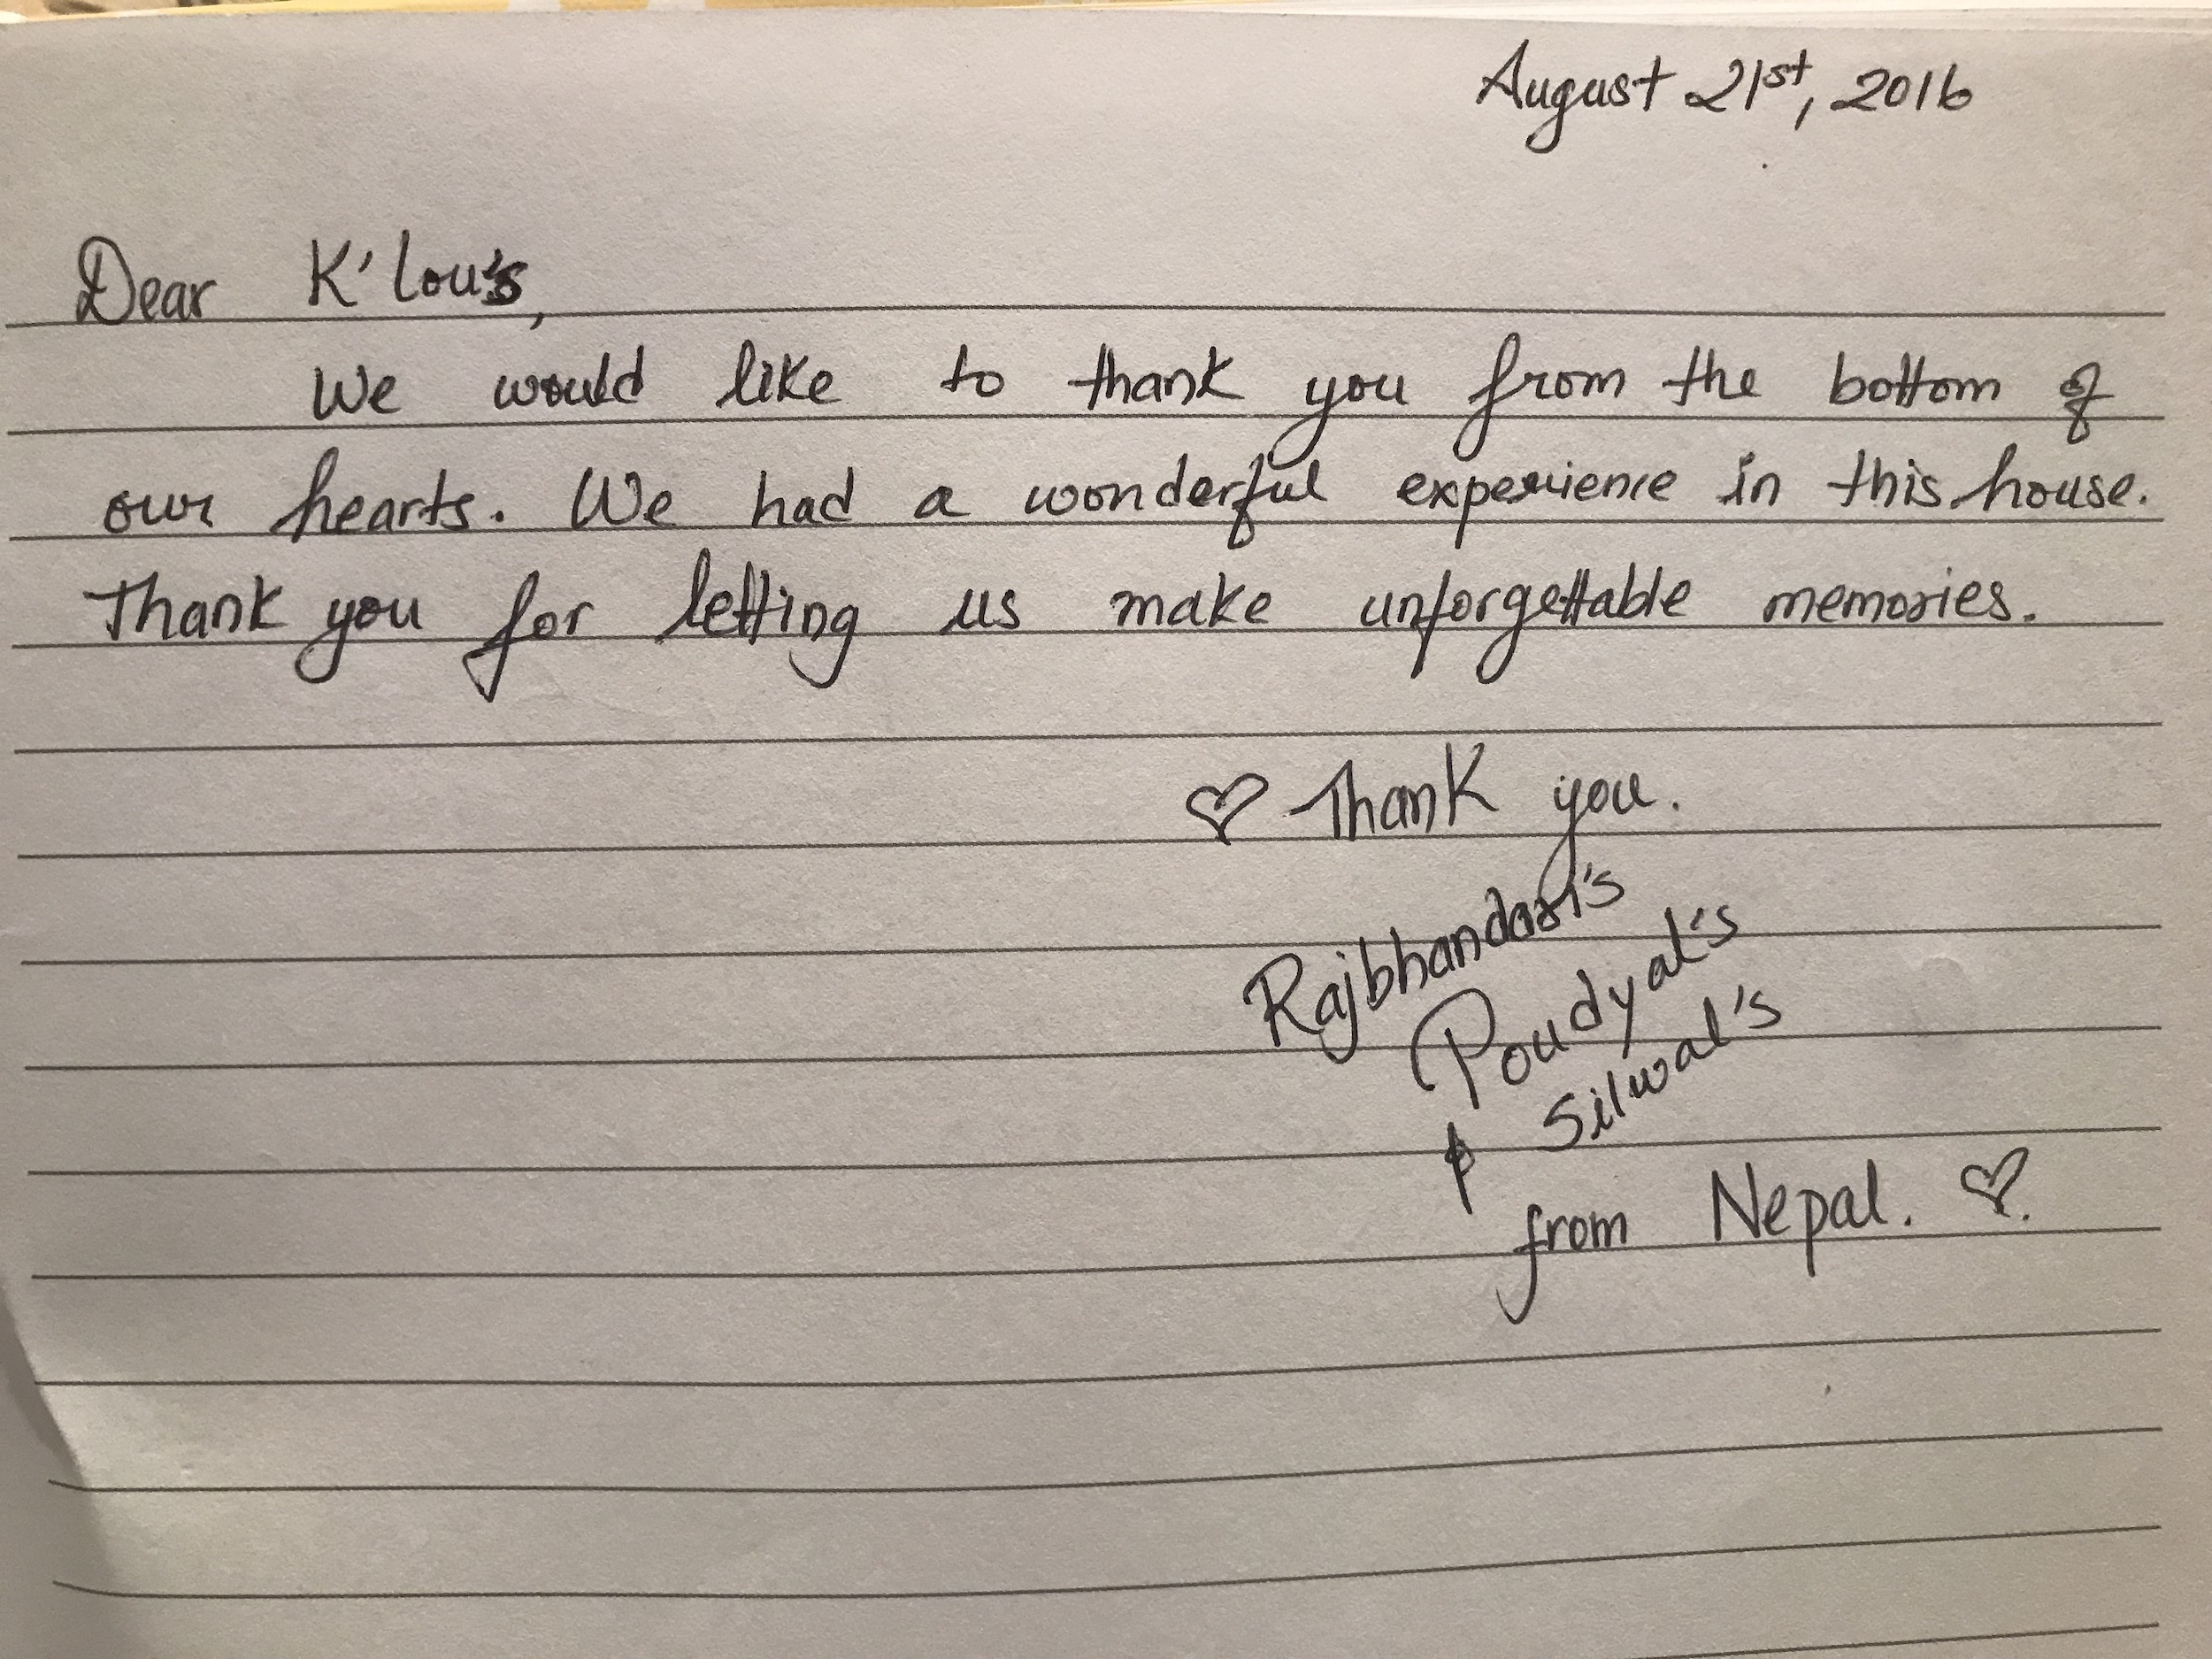 August 21st, 2016
Dear K'lou's,
We would like to thank you from the bottom of
our hearts. We had a wonderful experience in this house.
Thank you for letting us make unforgettable memories.
♡ Thank you.
Rajbhandari's
Poudyal's
& Silwal's
from Nepal. ♡.